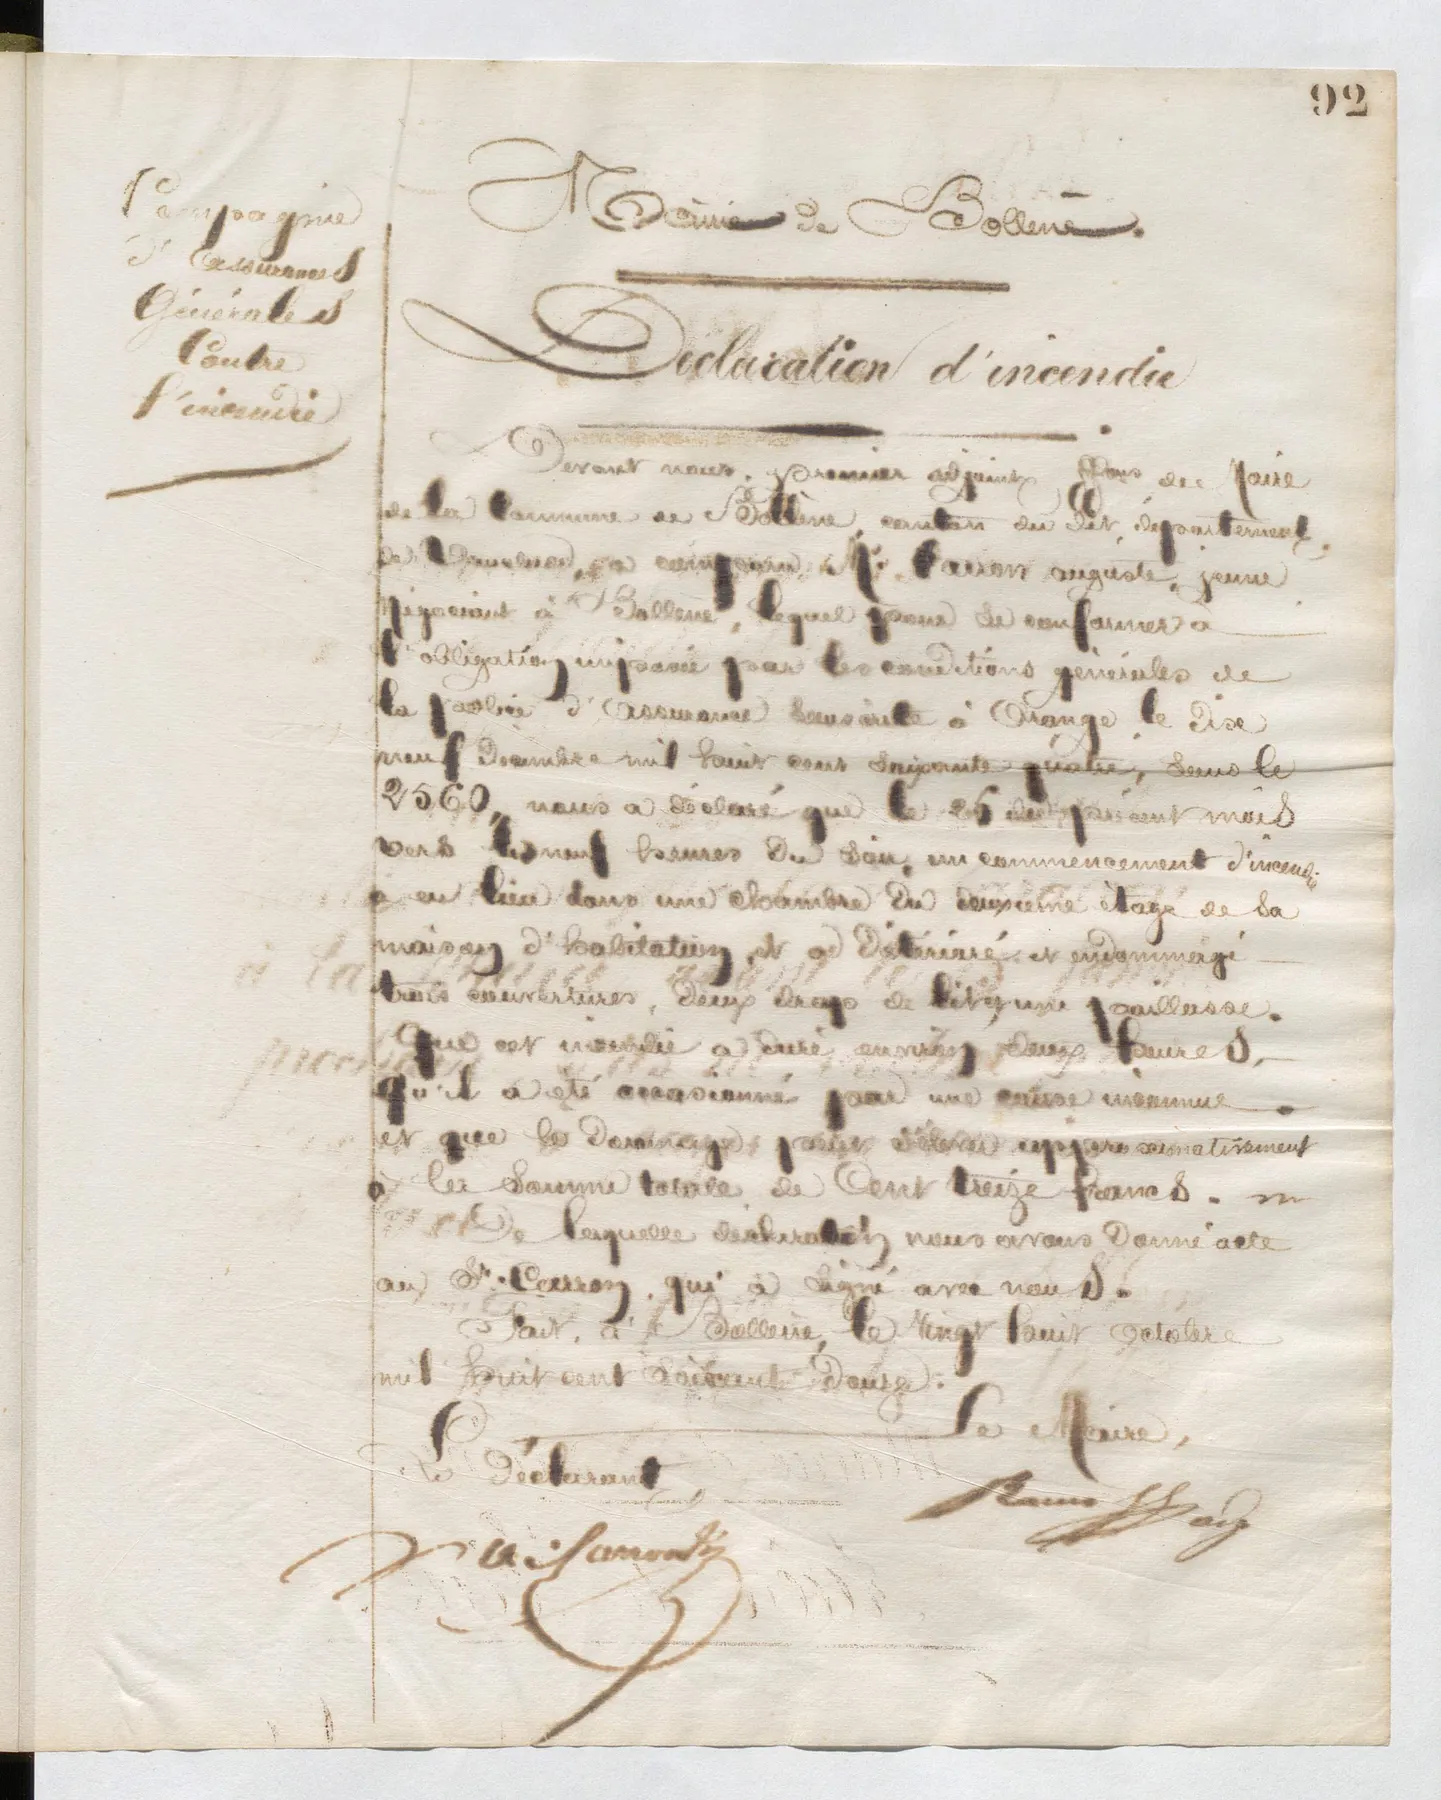 92
Compagnie
d'Assurances
Générales
Contre
l'incendie
Mairie de Bollène.
Déclaration d'incendie
Devant nous, premier adjoint, ffons de Maire
de la Commune de Bollène, canton du dit, département
de Vaucluse, a comparu Mr. Carron auguste, jeune
Négociant à Bollène, lequel pour se conformer à
l'obligation imposée par les conditions générales de
la police d'Assurance souscrite à Orange le Dix
neuf Décembre mil huit cent soixante quatre, sous le
2560, nous a déclaré que le 26 du présent mois
vers les neuf heures du soir, un commencement d'incendie
a eu lieu dans une chambre du deuxième étage de sa
maison d'habitation, et a détérioré et endommagé
trois couvertures, deux draps de lit, une paillasse.
Que cet incendie a duré environ deux heures,
qu'il a été occasionné par une cause inconnue
et que le Dommage peut s'élever approximativement
à la somme totale de Cent treize francs.
De laquelle déclaration nous avons donné acte
au Sr. Carron, qui a signé avec nous.
Fait, à Bollène, le vingt huit octobre
mil huit cent soixante Douze.
Le Maire,
Le Déclarant